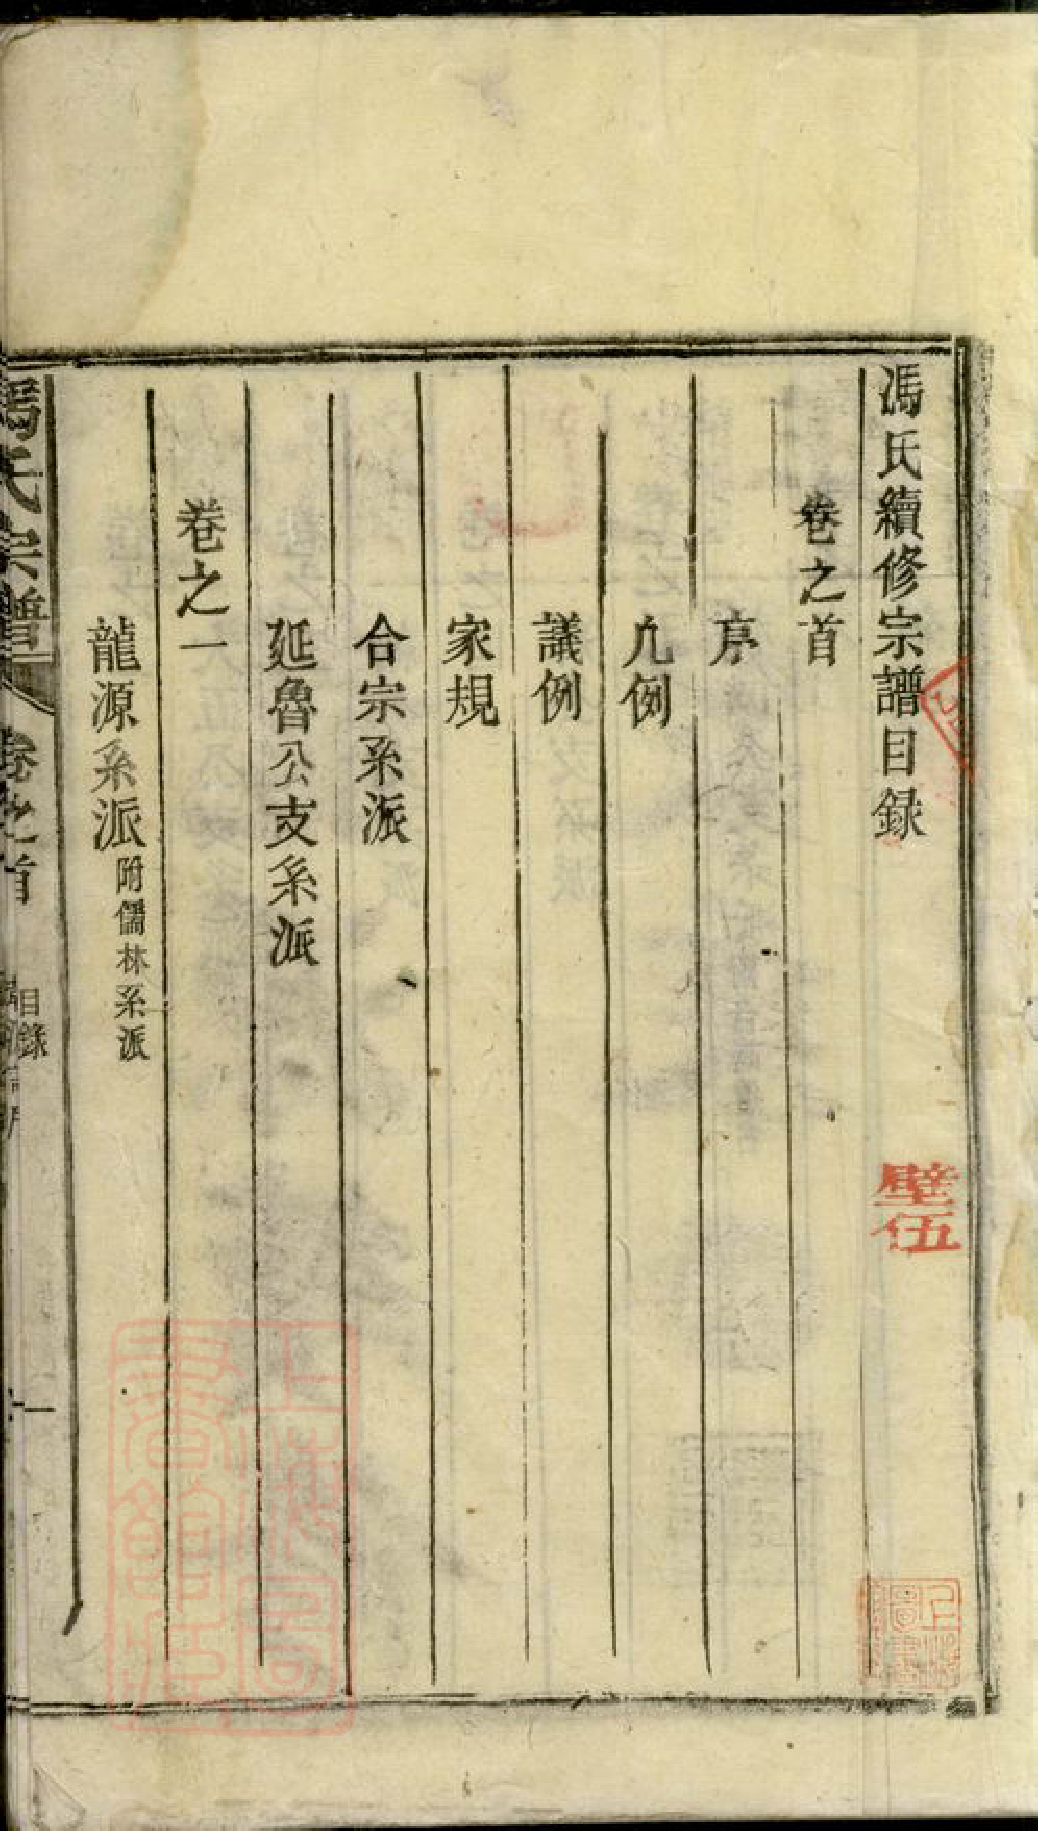 馮氏續修宗譜目録
卷之首
序
凢例
議例
家規
合宗系派
延魯公支系派
卷之一
龍源系派附儒林系派
馮氏宗譜
卷之首
目錄
一
壁伍